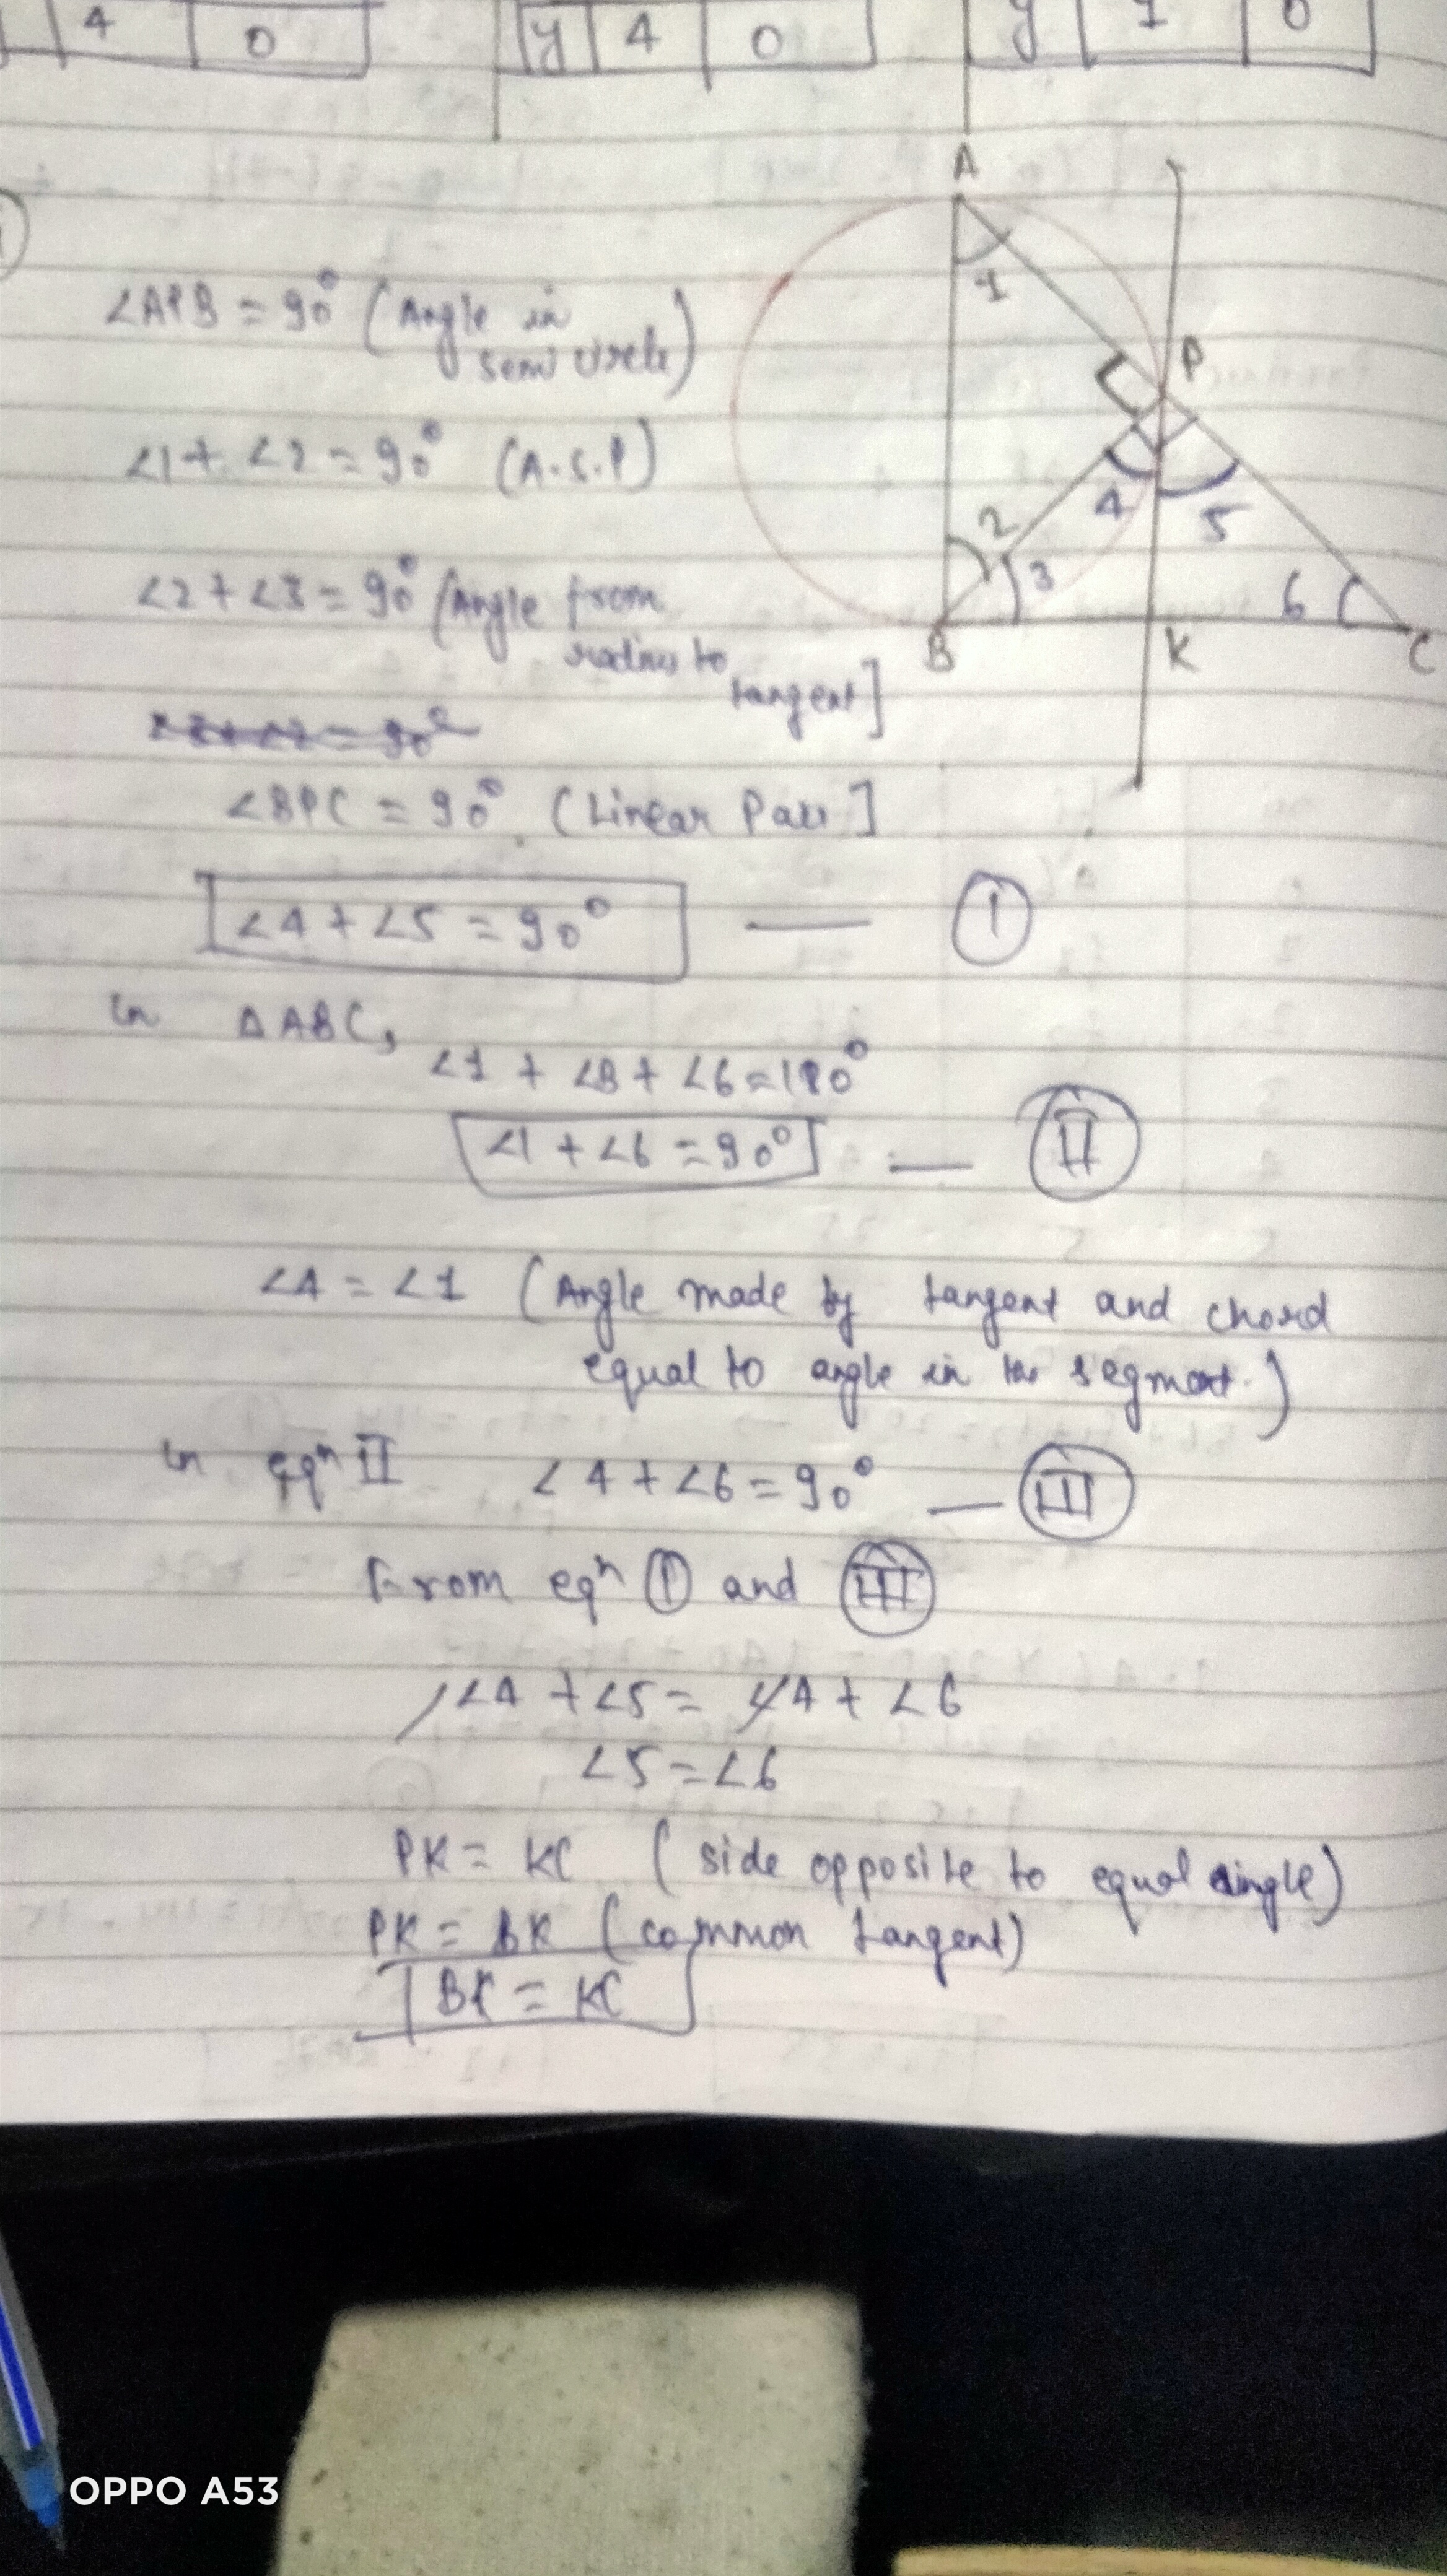 4 0
y 4 0
y 1 0
A
1
∠APB = 90° (Angle in
semi circle)
P
∠1 + ∠2 = 90° (A.S.P)
4 5
2
3
6
∠2 + ∠3 = 90° (Angle from
radius to
tangent]
B K C
∠BPC = 90° (Linear Pair]
∠4 + ∠5 = 90° — I
In ΔABC,
∠1 + ∠B + ∠6 = 180°
∠1 + ∠6 = 90° — II
∠4 = ∠1 (Angle made by tangent and chord
equal to angle in the segment.)
In eqⁿ II ∠4 + ∠6 = 90° — III
From eqⁿ I and III
∠4 + ∠5 = ∠4 + ∠6
∠5 = ∠6
PK = KC (side opposite to equal angle)
PK = BK (common tangent)
BK = KC
OPPO A53